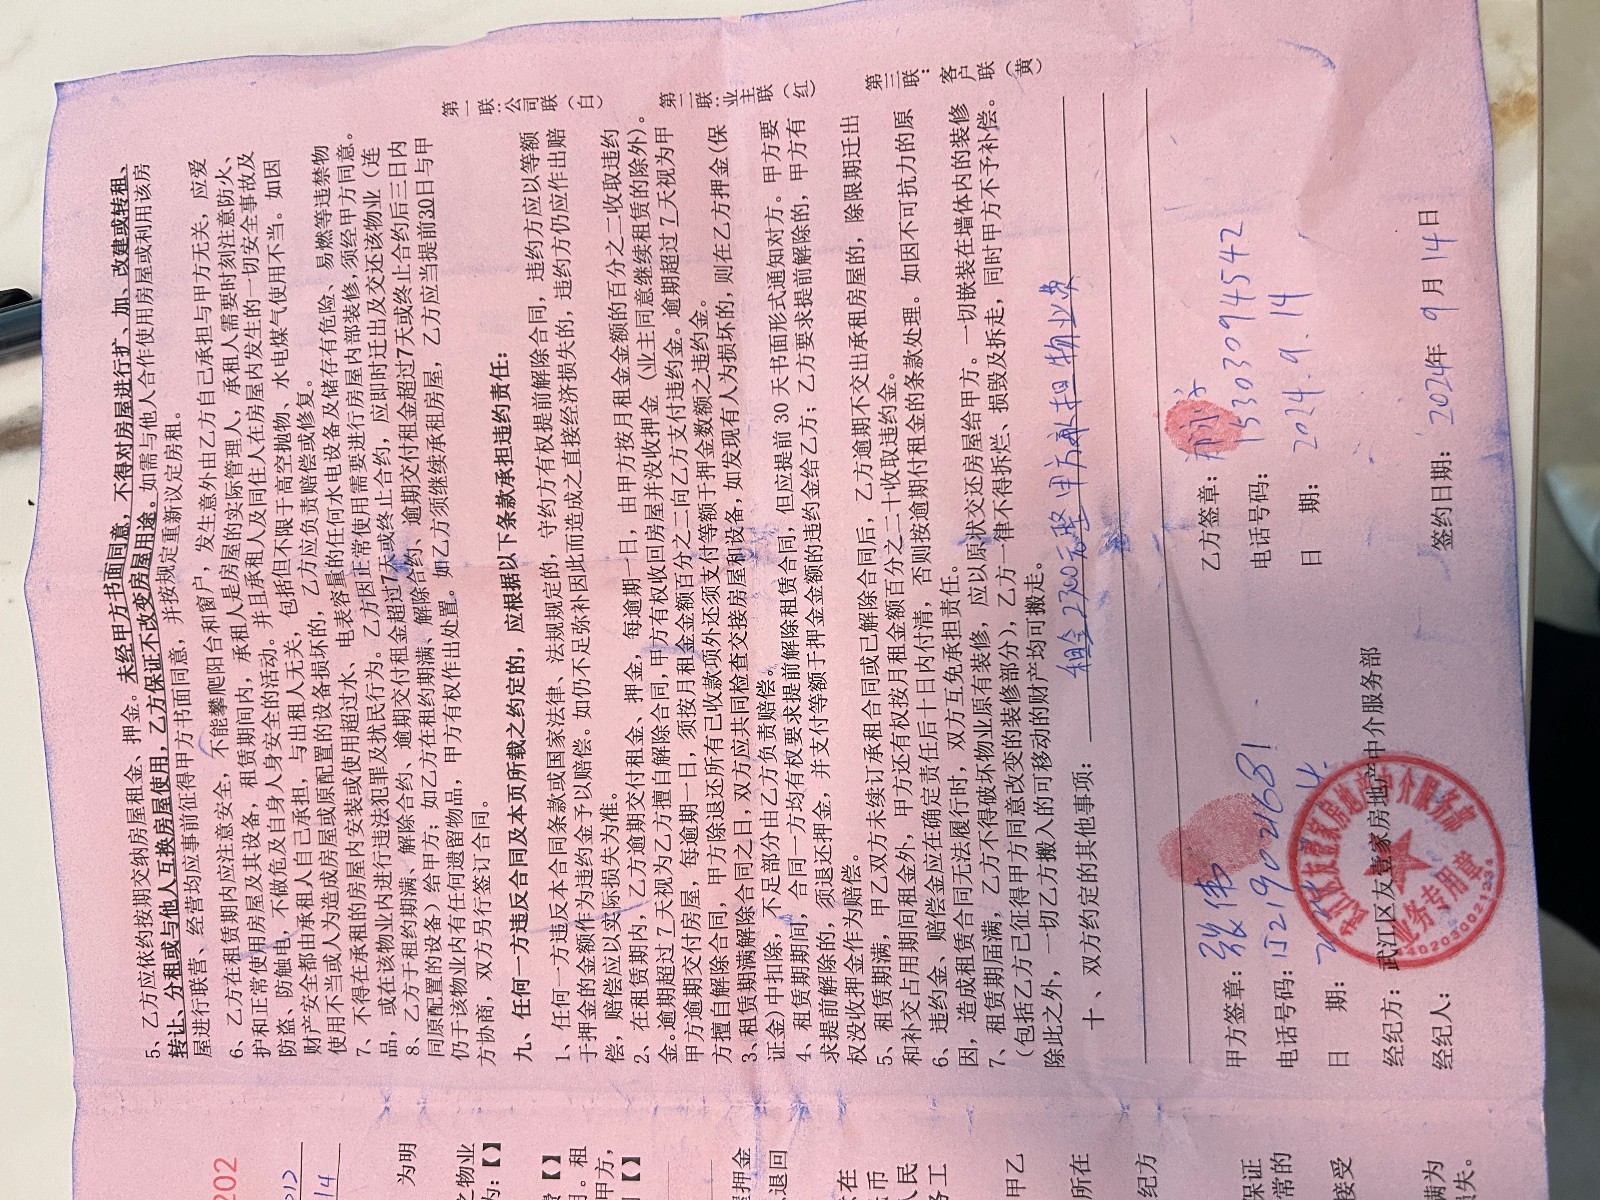 5、乙方应依约按期交纳房屋租金、押金。未经甲方书面同意，不得对房屋进行扩、加、改建或转租、
转让、分租或与他人互换房屋使用，乙方保证不改变房屋用途。如需与他人合作使用房屋或利用该房
屋进行联营、经营均应事前征得甲方书面同意，并按规定重新议定房租。
6、乙方在租赁期内应注意安全，不能攀爬阳台和窗户，发生意外由乙方自己承担与甲方无关，应爱
护和正常使用房屋及其设备，租赁期间内，承租人是房屋的实际管理人，承租人需要时刻注意防火、
防盗、防触电，不做危及自身人身安全的活动。并且承租人及同住人在房屋内发生的一切安全事故及
财产安全都由承租人自己承担，与出租人无关，包括但不限于高空抛物、水电煤气使用不当。如因
使用不当或人为造成房屋或原配置的设备损坏的，乙方应负责赔偿或修复。
7、不得在承租的房屋内安装或使用超过水、电表容量的任何水电设备及储存有危险、易燃等违禁物
品，或在该物业内进行违法犯罪及扰民行为。乙方因正常使用需要进行房屋内部装修，须经甲方同意。
8、乙方于租约期满、解除合约、逾期交付租金超过7天或终止合约，应即时迁出及交还该物业（连
同原配置的设备）给甲方；如乙方在租约期满、解除合约、逾期交付租金超过7天或终止合约后三日内
仍于该物业内有任何遗留物品，甲方有权作出处置。如乙方须继续承租房屋，乙方应当提前30日与甲
方协商，双方另行签订合同。
九、任何一方违反合同及本页所载之约定的，应根据以下条款承担违约责任：
1、任何一方违反本合同条款或国家法律、法规规定的，守约方有权提前解除合同，违约方应以等额
于押金的金额作为违约金予以赔偿。如仍不足弥补因此而造成之直接经济损失的，违约方仍应作出赔
偿，赔偿应以实际损失为准。
2、在租赁期内，乙方逾期交付租金、押金，每逾期一日，由甲方按月租金金额的百分之二收取违约
金。逾期超过 7 天视为乙方擅自解除合同，甲方有权收回房屋并没收押金（业主同意继续租赁的除外）。
甲方逾期交付房屋，每逾期一日，须按月租金金额百分之二向乙方支付违约金。逾期超过 7 天视为甲
方擅自解除合同，甲方除退还所有已收款项外还须支付等额于押金数额之违约金。
3、租赁期满解除合同之日，双方应共同检查交接房屋和设备，如发现有人为损坏的，则在乙方押金(保
证金）中扣除，不足部分由乙方负责赔偿。
4、租赁期期间，合同一方均有权要求提前解除租赁合同，但应提前 30 天书面形式通知对方。甲方要
求提前解除的，须退还押金，并支付等额于押金金额的违约金给乙方；乙方要求提前解除的，甲方有
权没收押金作为赔偿。
5、租赁期满，甲乙双方未续订承租合同或已解除合同后，乙方逾期不交出承租房屋的，除限期迁出
和补交占用期间租金外，甲方还有权按月租金额百分之二十收取违约金。
6、违约金、赔偿金应在确定责任后十日内付清，否则按逾期付租金的条款处理。如因不可抗力的原
因，造成租赁合同无法履行时，双方互免承担责任。
7、租赁期届满，乙方不得破坏物业原有装修，应以原状交还房屋给甲方。一切嵌装在墙体内的装修
（包括乙方已征得甲方同意改变的装修部分），乙方一律不得拆烂、损毁及拆走，同时甲方不予补偿。
除此之外，一切乙方搬入的可移动的财产均可搬走。
十、双方约定的其他事项：租金2300元整甲方承担物业费
甲方签章：张伟
电话号码：15219021681
日 期：
经纪方：武江区友壹家房地产中介服务部
经纪人：
乙方签章：
电话号码：15303094542
日 期：2024.9.14
签约日期：2024年 9 月 14 日
第一联：公司联（白）
第二联：业主联（红）
第三联：客户联（黄）
武江区友壹家房地产中介服务部
业务专用章
202
14
为明
物业
为：【】
【】
。租
甲方，
【】
押金
退回
在
币
人民
工
甲乙
所在
纪方
保证
常的
接受
满为
失。